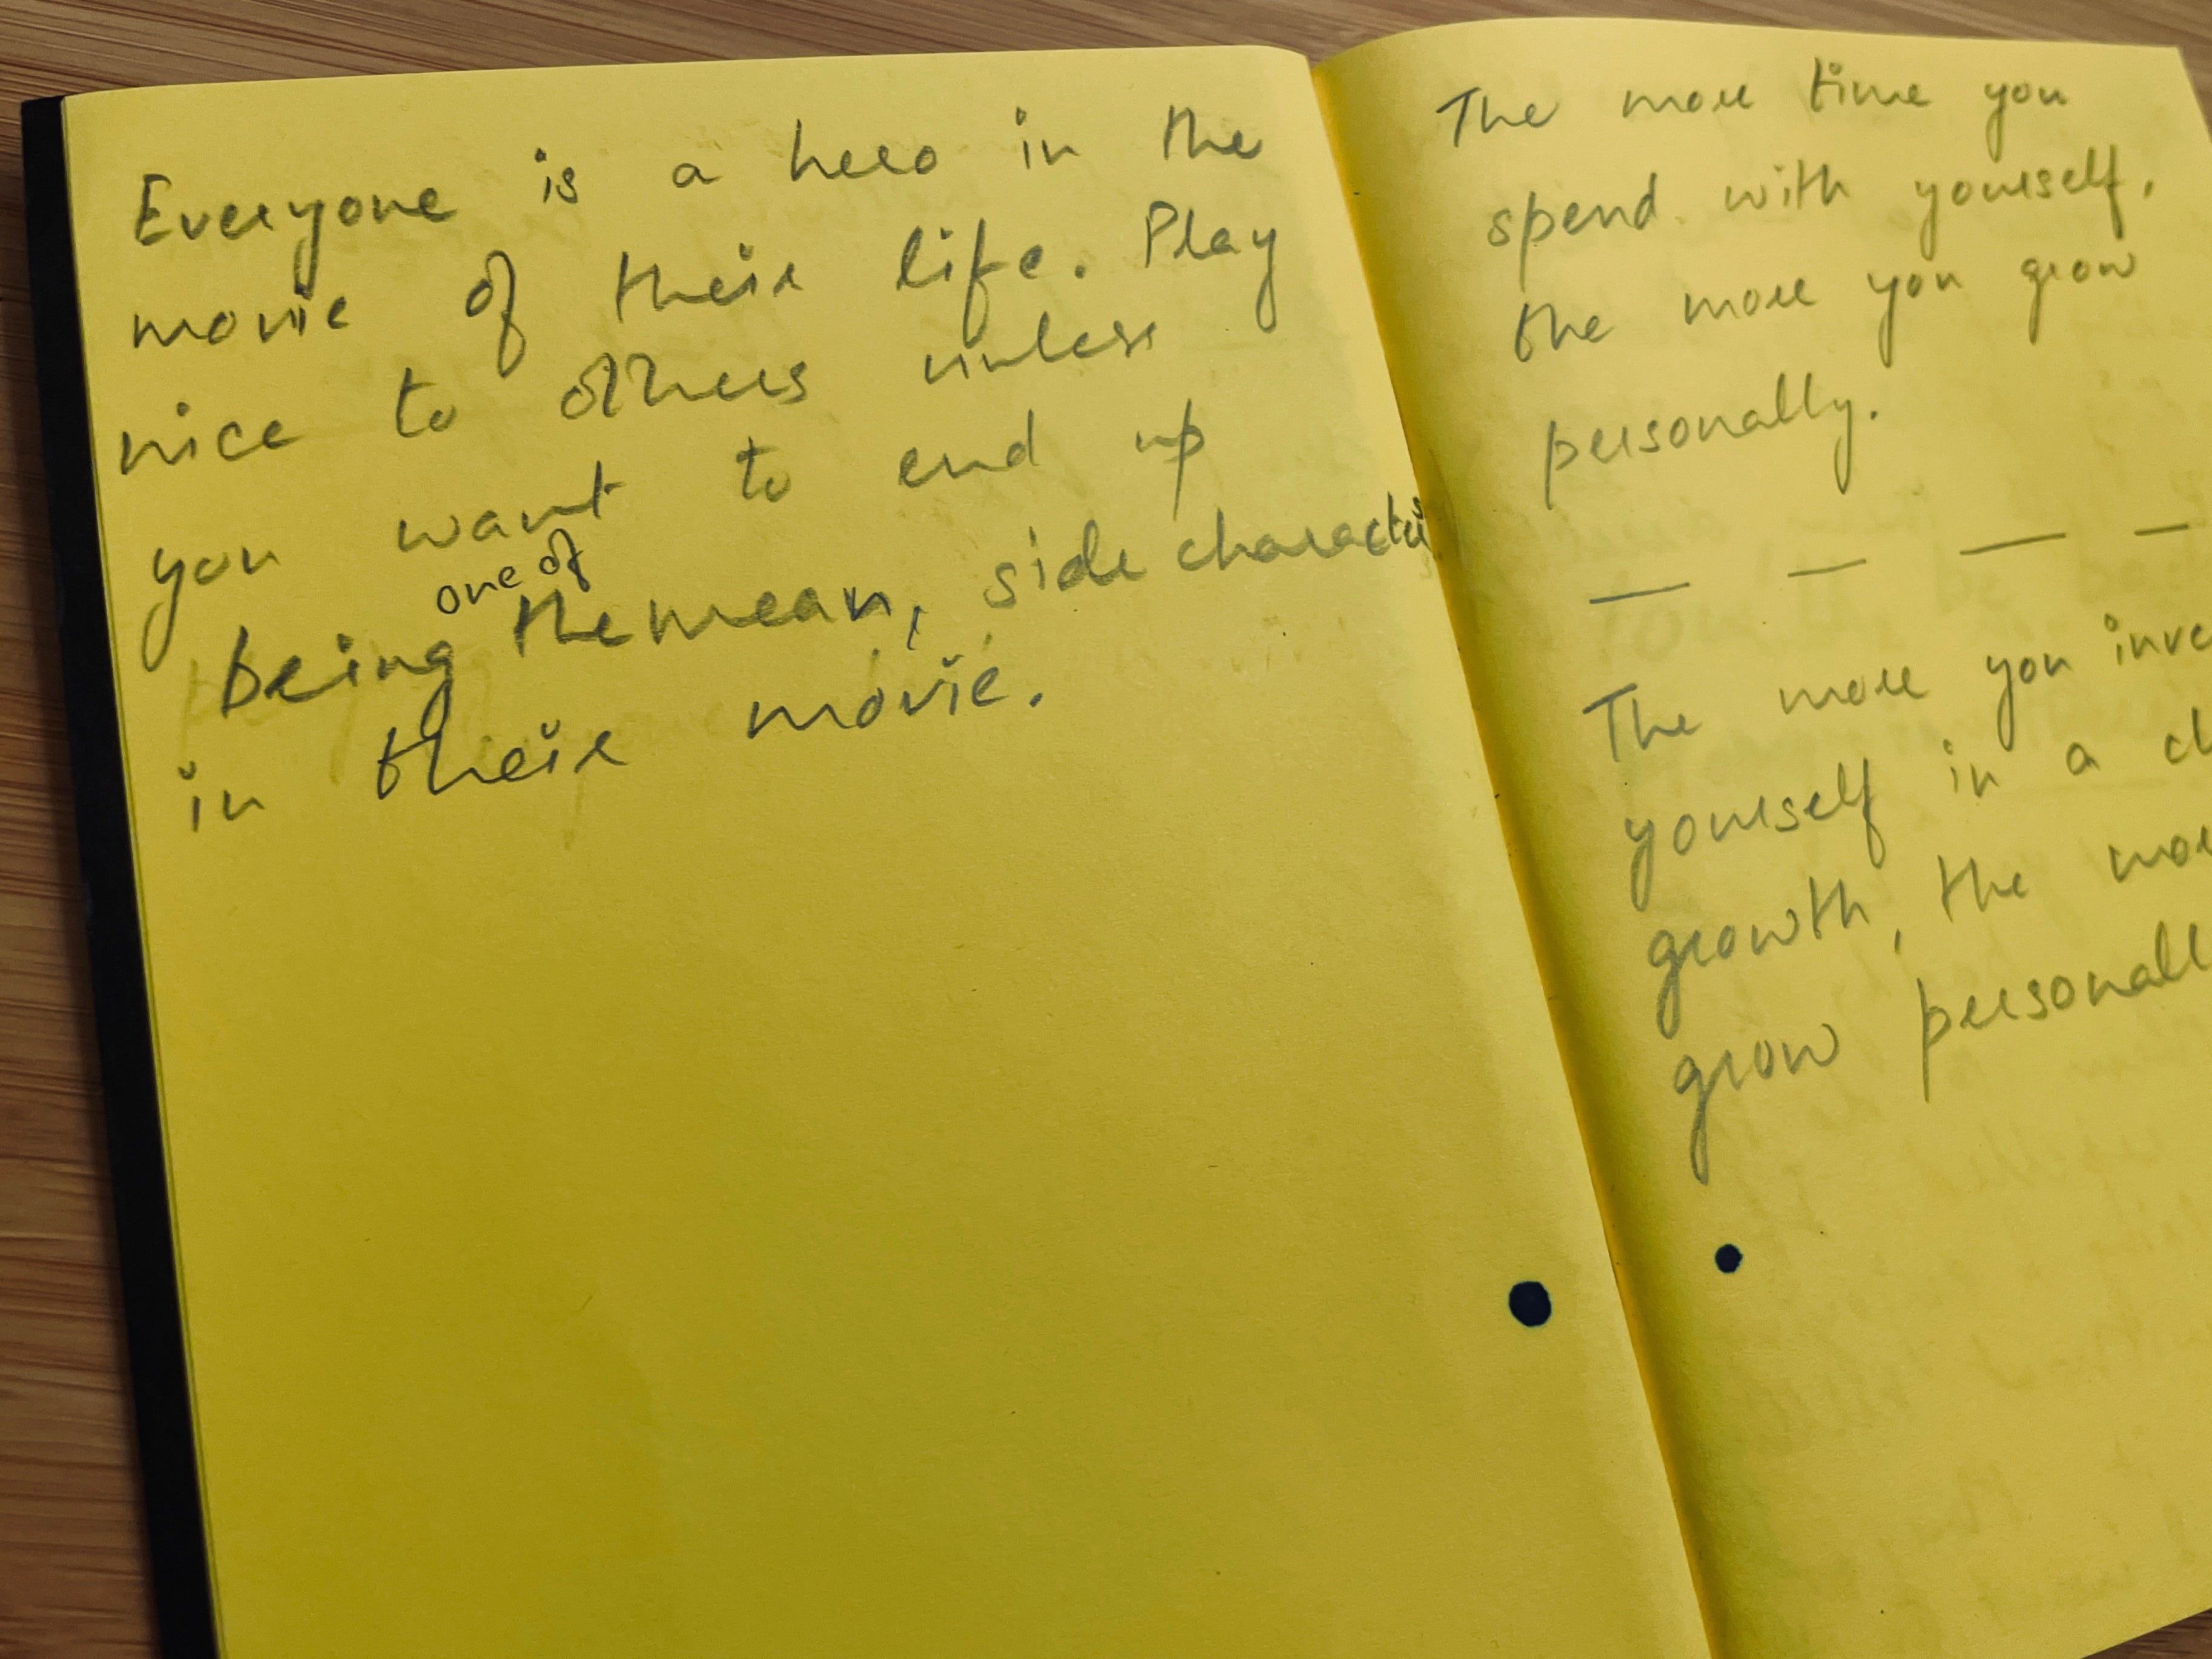 Everyone is a hero in the
movie of their life. Play
nice to others unless
you want to end up
being one of the mean, side characters
in their movie.
The more time you
spend with yourself,
the more you grow
personally.
The more you inve
yourself in a
growth, the mor
grow personall